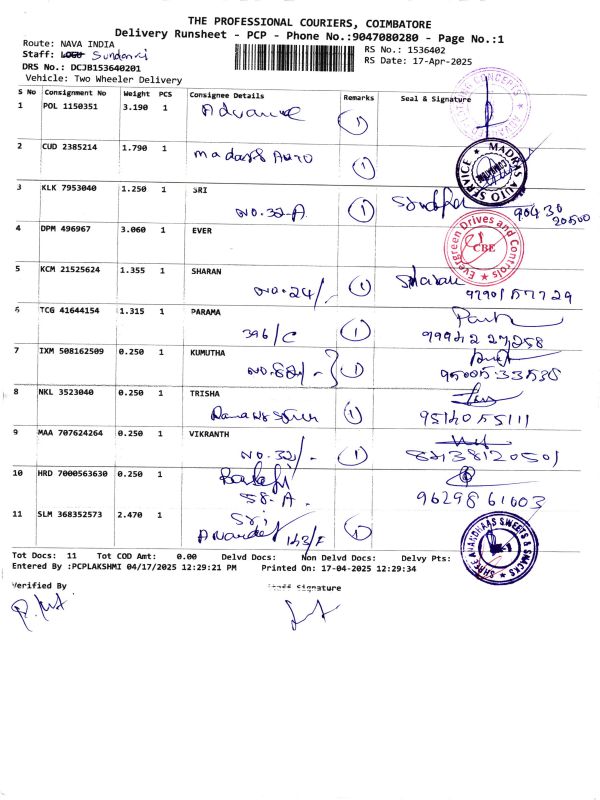 THE PROFESSIONAL COURIERS, COIMBATORE
Delivery Runsheet - PCP - Phone No.:9047080280 - Page No.:1
Route: NAVA INDIA
RS No.: 1536402
Staff: Sundar
RS Date: 17-Apr-2025
DRS No.: DCJB153640201
Vehicle: Two Wheeler Delivery
S No Consignment No Weight PCS Consignee Details Remarks Seal & Signature
1 POL 1150351 3.190 1 Advance 1
2 CUD 2385214 1.790 1 Madras Auto 1 MADRAS AUTO SERVICE
3 KLK 7953040 1.250 1 SRI 1
NO.32-A 90430
20500
4 DPM 496967 3.060 1 EVER Evergreen Drives and Controls CBE
5 KCM 21525624 1.355 1 SHARAN Sharan
NO.24/- 1 9790157729
6 TCG 41644154 1.315 1 PARAMA
396/C 1 9994227258
7 IXM 508162509 0.250 1 KUMUTHA
NO.82/- 1 9500533538
8 NKL 3523040 0.250 1 TRISHA
1 9514055111
9 MAA 707624264 0.250 1 VIKRANTH
NO.32/- 1
10 HRD 7000563630 0.250 1 Balaji
58-A. 9629861003
11 SLM 368352573 2.470 1 Sri
143/F 1 SHREE ANANDHAAS SWEETS & SNACKS
Tot Docs: 11 Tot COD Amt: 0.00 Delvd Docs: Non Delvd Docs: Delvy Pts:
Entered By :PCPLAKSHMI 04/17/2025 12:29:21 PM Printed On: 17-04-2025 12:29:34
Verified By Staff Signature